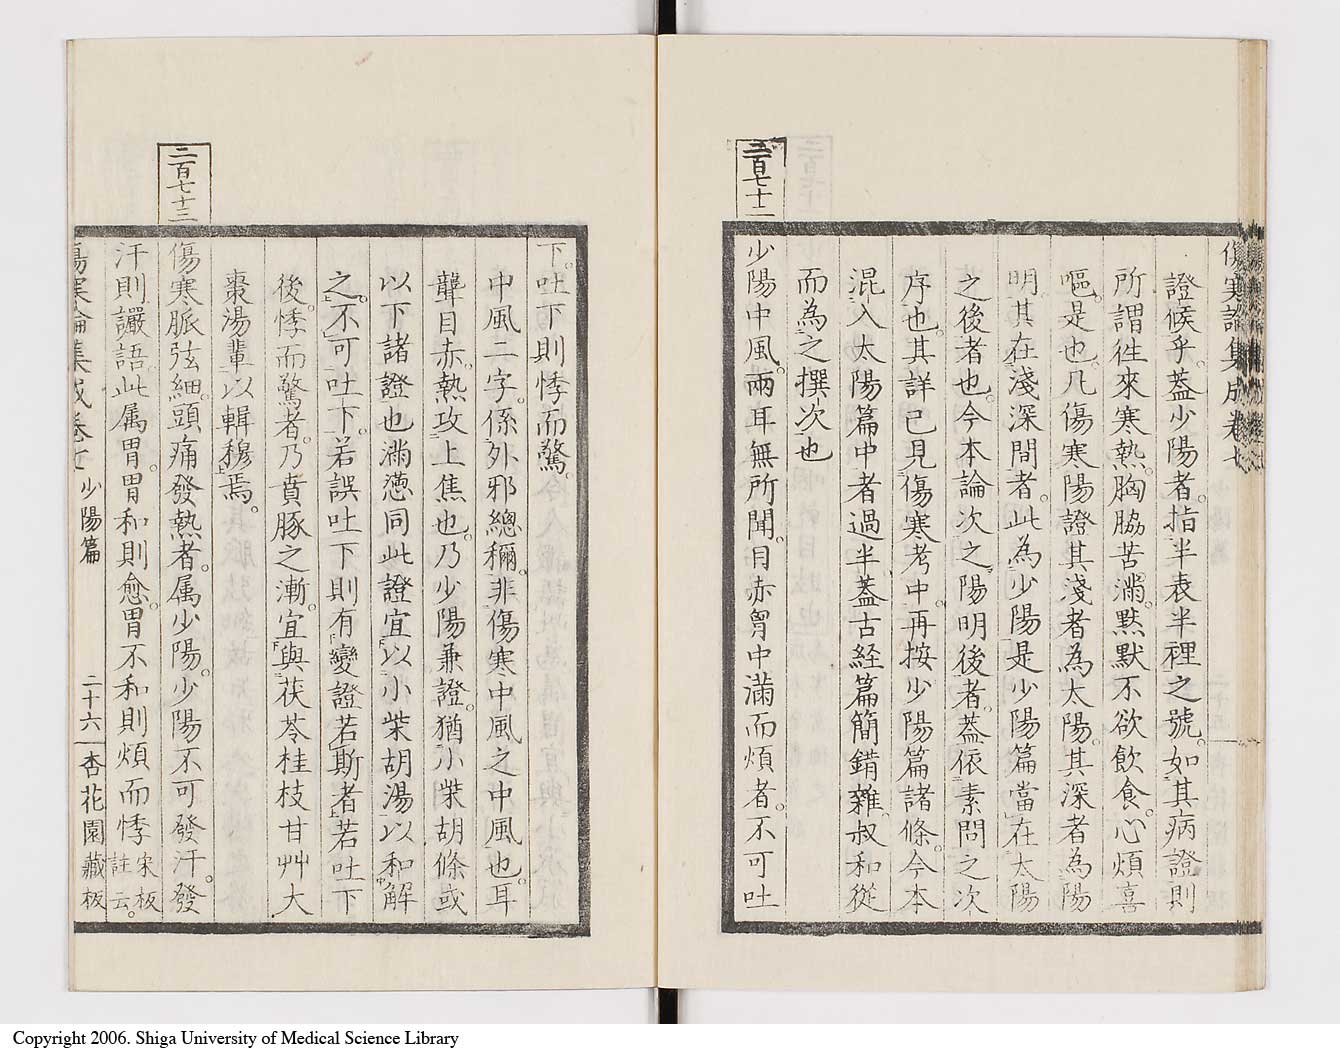 傷寒論集成卷七
證候乎。蓋少陽者。指半表半裡之號。如其病證則
所謂徃來寒熱。胸脇苦滿。默默不欲飲食。心煩喜
嘔。是也。凡傷寒陽證其淺者為太陽。其深者為陽
明。其在淺深間者。此為少陽是少陽篇當在太陽
之後者也。今本論次之陽明後者。蓋依素問之次
序也。其詳已見傷寒考中。再按少陽篇諸條。今本
混入太陽篇中者過半蓋古経篇簡錯雜。叔和從
而為之撰次也
二百七十二
少陽中風。兩耳無所聞。目赤胷中滿而煩者。不可吐
下。吐下則悸而驚。
中風二字。係外邪總稱。非傷寒中風之中風也。耳
聾目赤。熱攻上焦也。乃少陽兼證。猶小柴胡條或
以下諸證也滿懣同此證宜以小柴胡湯以和解
之。不可吐下。若誤吐下則有變證若斯者若吐下
後。悸而驚者。乃賁豚之漸。宜與茯苓桂枝甘艸大
棗湯輩以輯穆焉。
二百七十三
傷寒脈弦細。頭痛發熱者。属少陽。少陽不可發汗。發
汗則讝語。此属胃。胃和則愈。胃不和則煩而悸 宋板註云。
傷寒論集成卷七 少陽篇 二十六 杏花園藏板
Copyright 2006. Shiga University of Medical Science Library